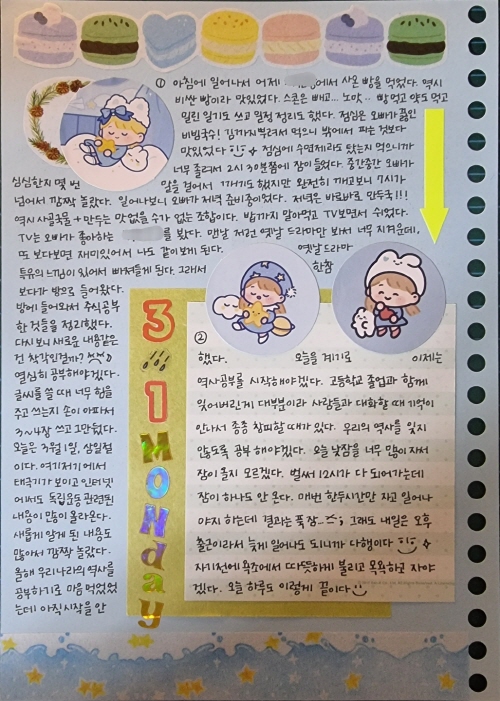 ① 아침에 일어나서 어제 에서 사온 빵을 먹었다. 역시
비싼 빵이라 맛있었다. 스콘은 빼고... 노맛.. 빵먹고 약도 먹고
밀린 일기도 쓰고 일정 정리도 했다. 점심은 오빠가 끓인
비빔국수! 김가지 뿌려서 먹으니 밖에서 파는 것보다
맛있었다 점심에 수면제라도 탔는지 먹으니까
너무 졸려서 2시 30분쯤에 잠이 들었다. 중간중간 오빠가
심심한지 몇 번 앞을 걸어서 깨기도 했지만 완전히 깨고보니 7시가
넘어서 깜짝 놀랐다. 일어나보니 오빠가 저녁 준비중이었다. 저녁은 바로바로 만두국!!!
역시 사골국물+만두는 맛없을 수가 없는 조합이다. 밥까지 말아먹고 TV보면서 쉬었다.
TV는 오빠가 좋아하는 를 봤다. 맨날 저런 옛날 드라마만 봐서 너무 지겨운데,
또 보다보면 재미있어서 나도 같이 보게 된다. 옛날드라마
특유의 느낌이 있어서 빠져들게 된다. 그래서 한참
보다가 밤으로 들어왔다.
방에 들어와서 주식공부
한 것을 정리했다.
다시 보니 새로운 내용같은
건 착각인걸까?
열심히 공부해야겠다.
글씨를 쓸 때 너무 힘을
주고 쓰는지 손이 아파서
3~4장 쓰고 그만뒀다.
오늘은 3월 1일, 삼일절
이다. 여기저기에서
태극기가 보이고 인터넷
에서도 독립운동 관련된
내용이 많이 올라온다.
새롭게 알게 된 내용도
많아서 깜짝 놀랐다.
올해 우리나라의 역사를
공부하기로 마음먹었었
는데 아직 시작을 안
3
1
Monday
②
했다. 오늘을 계기로 이제는
역사공부를 시작해야겠다. 고등학교 졸업과 함께
잊어버린게 대부분이라 사람들과 대화할 때 기억이
안나서 종종 창피할 때가 있다. 우리의 역사를 잊지
않도록 공부 해야겠다. 오늘 낮잠을 너무 많이 자서
잠이 올지 모르겠다. 벌써 12시가 다 되어가는데
잠이 하나도 안 온다. 매번 한두시간만 자고 일어나
야지 하는데 결과는 푹 잠.. 그래도 내일은 오후
출근이라서 늦게 일어나도 되니까 다행이다
자기전에 욕조에서 따뜻하게 불리고 목욕하고 자야
겠다. 오늘 하루도 이렇게 끝이다